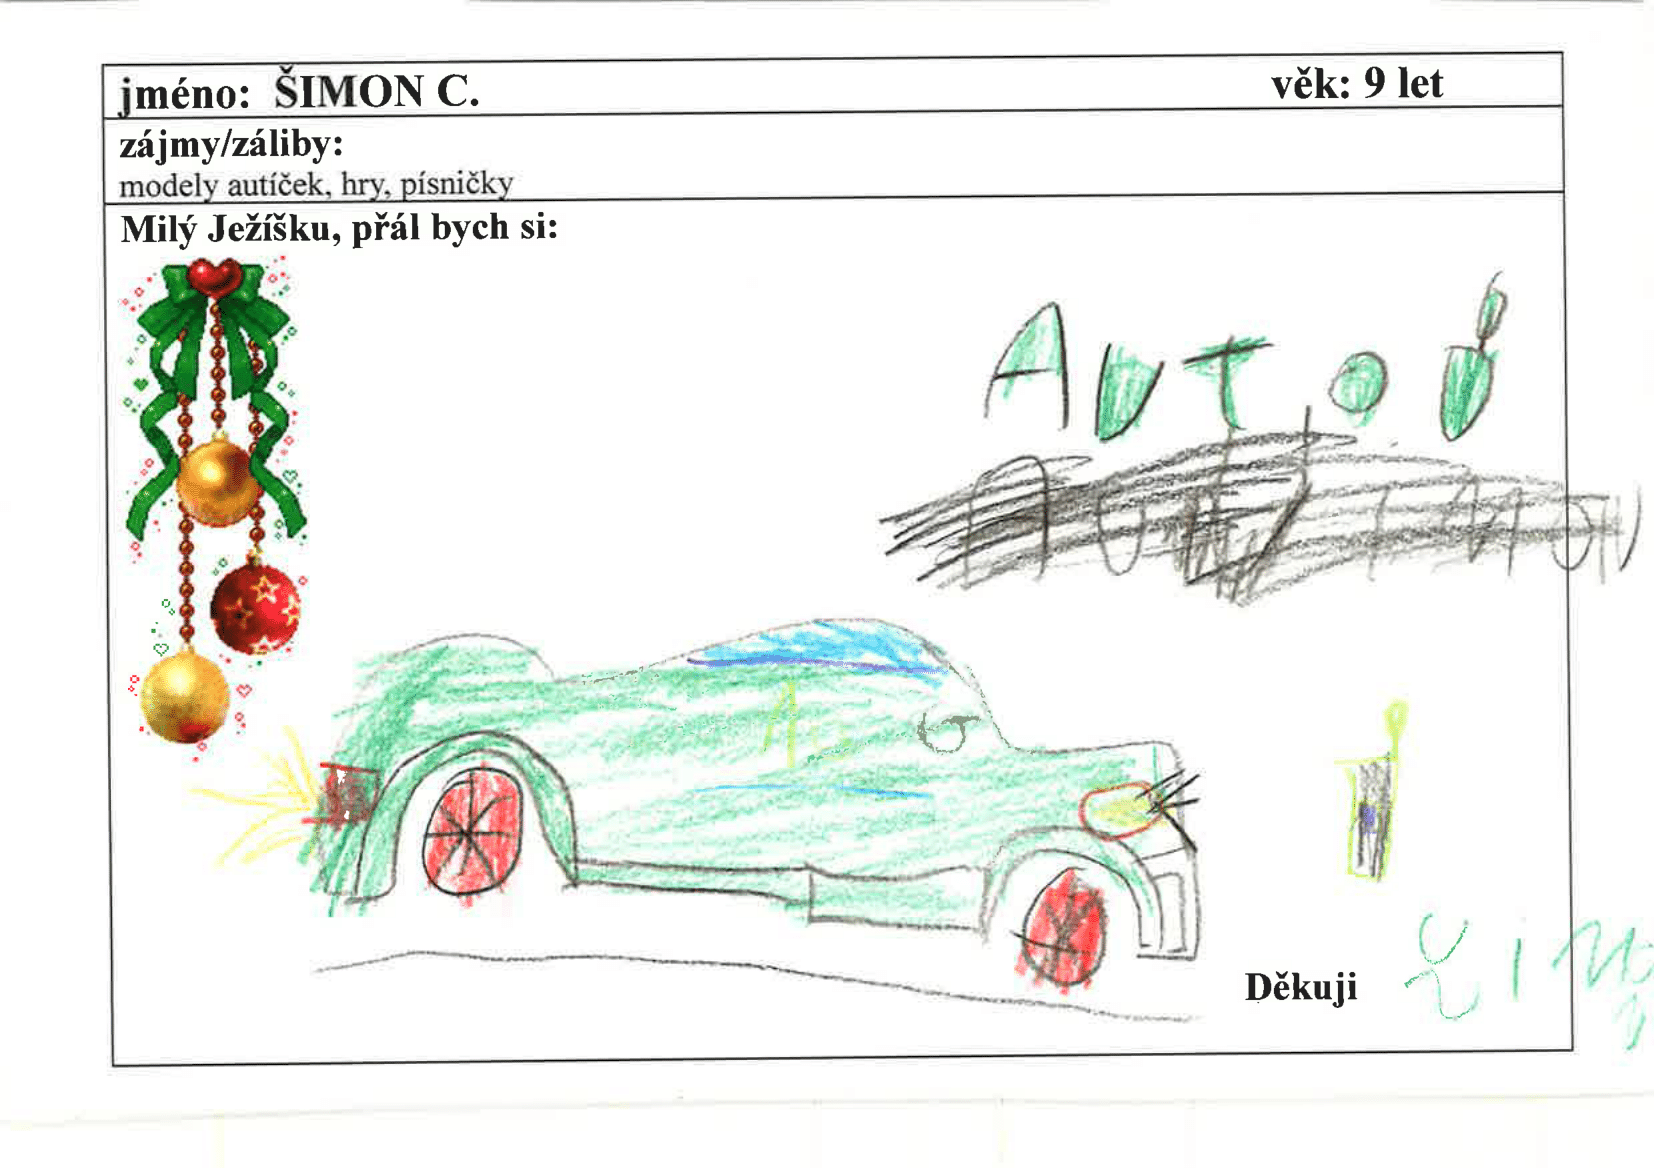 jméno: ŠIMON C. věk: 9 let
zájmy/záliby:
modely autíček, hry, písničky
Milý Ježíšku, přál bych si:
AUTO
Děkuji